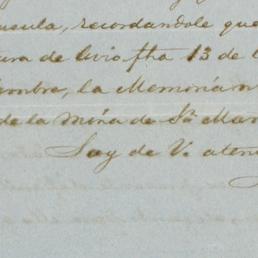 nsula, recordandole que
ura de Livio fha 13 de
mbre, la Memoria
de la mina de Sta Mar
Soy de V. aten